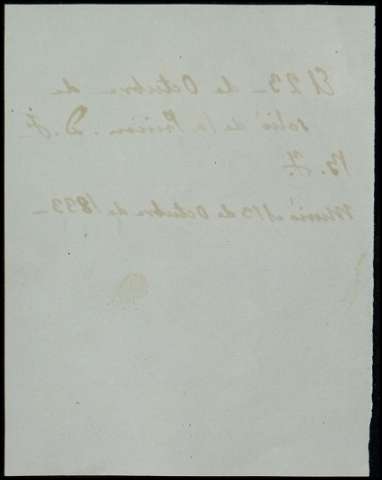 El 23 de Octubre de
salió de la Prision. D. F.
B. F.
Murió el 13 de Octubre de 1833